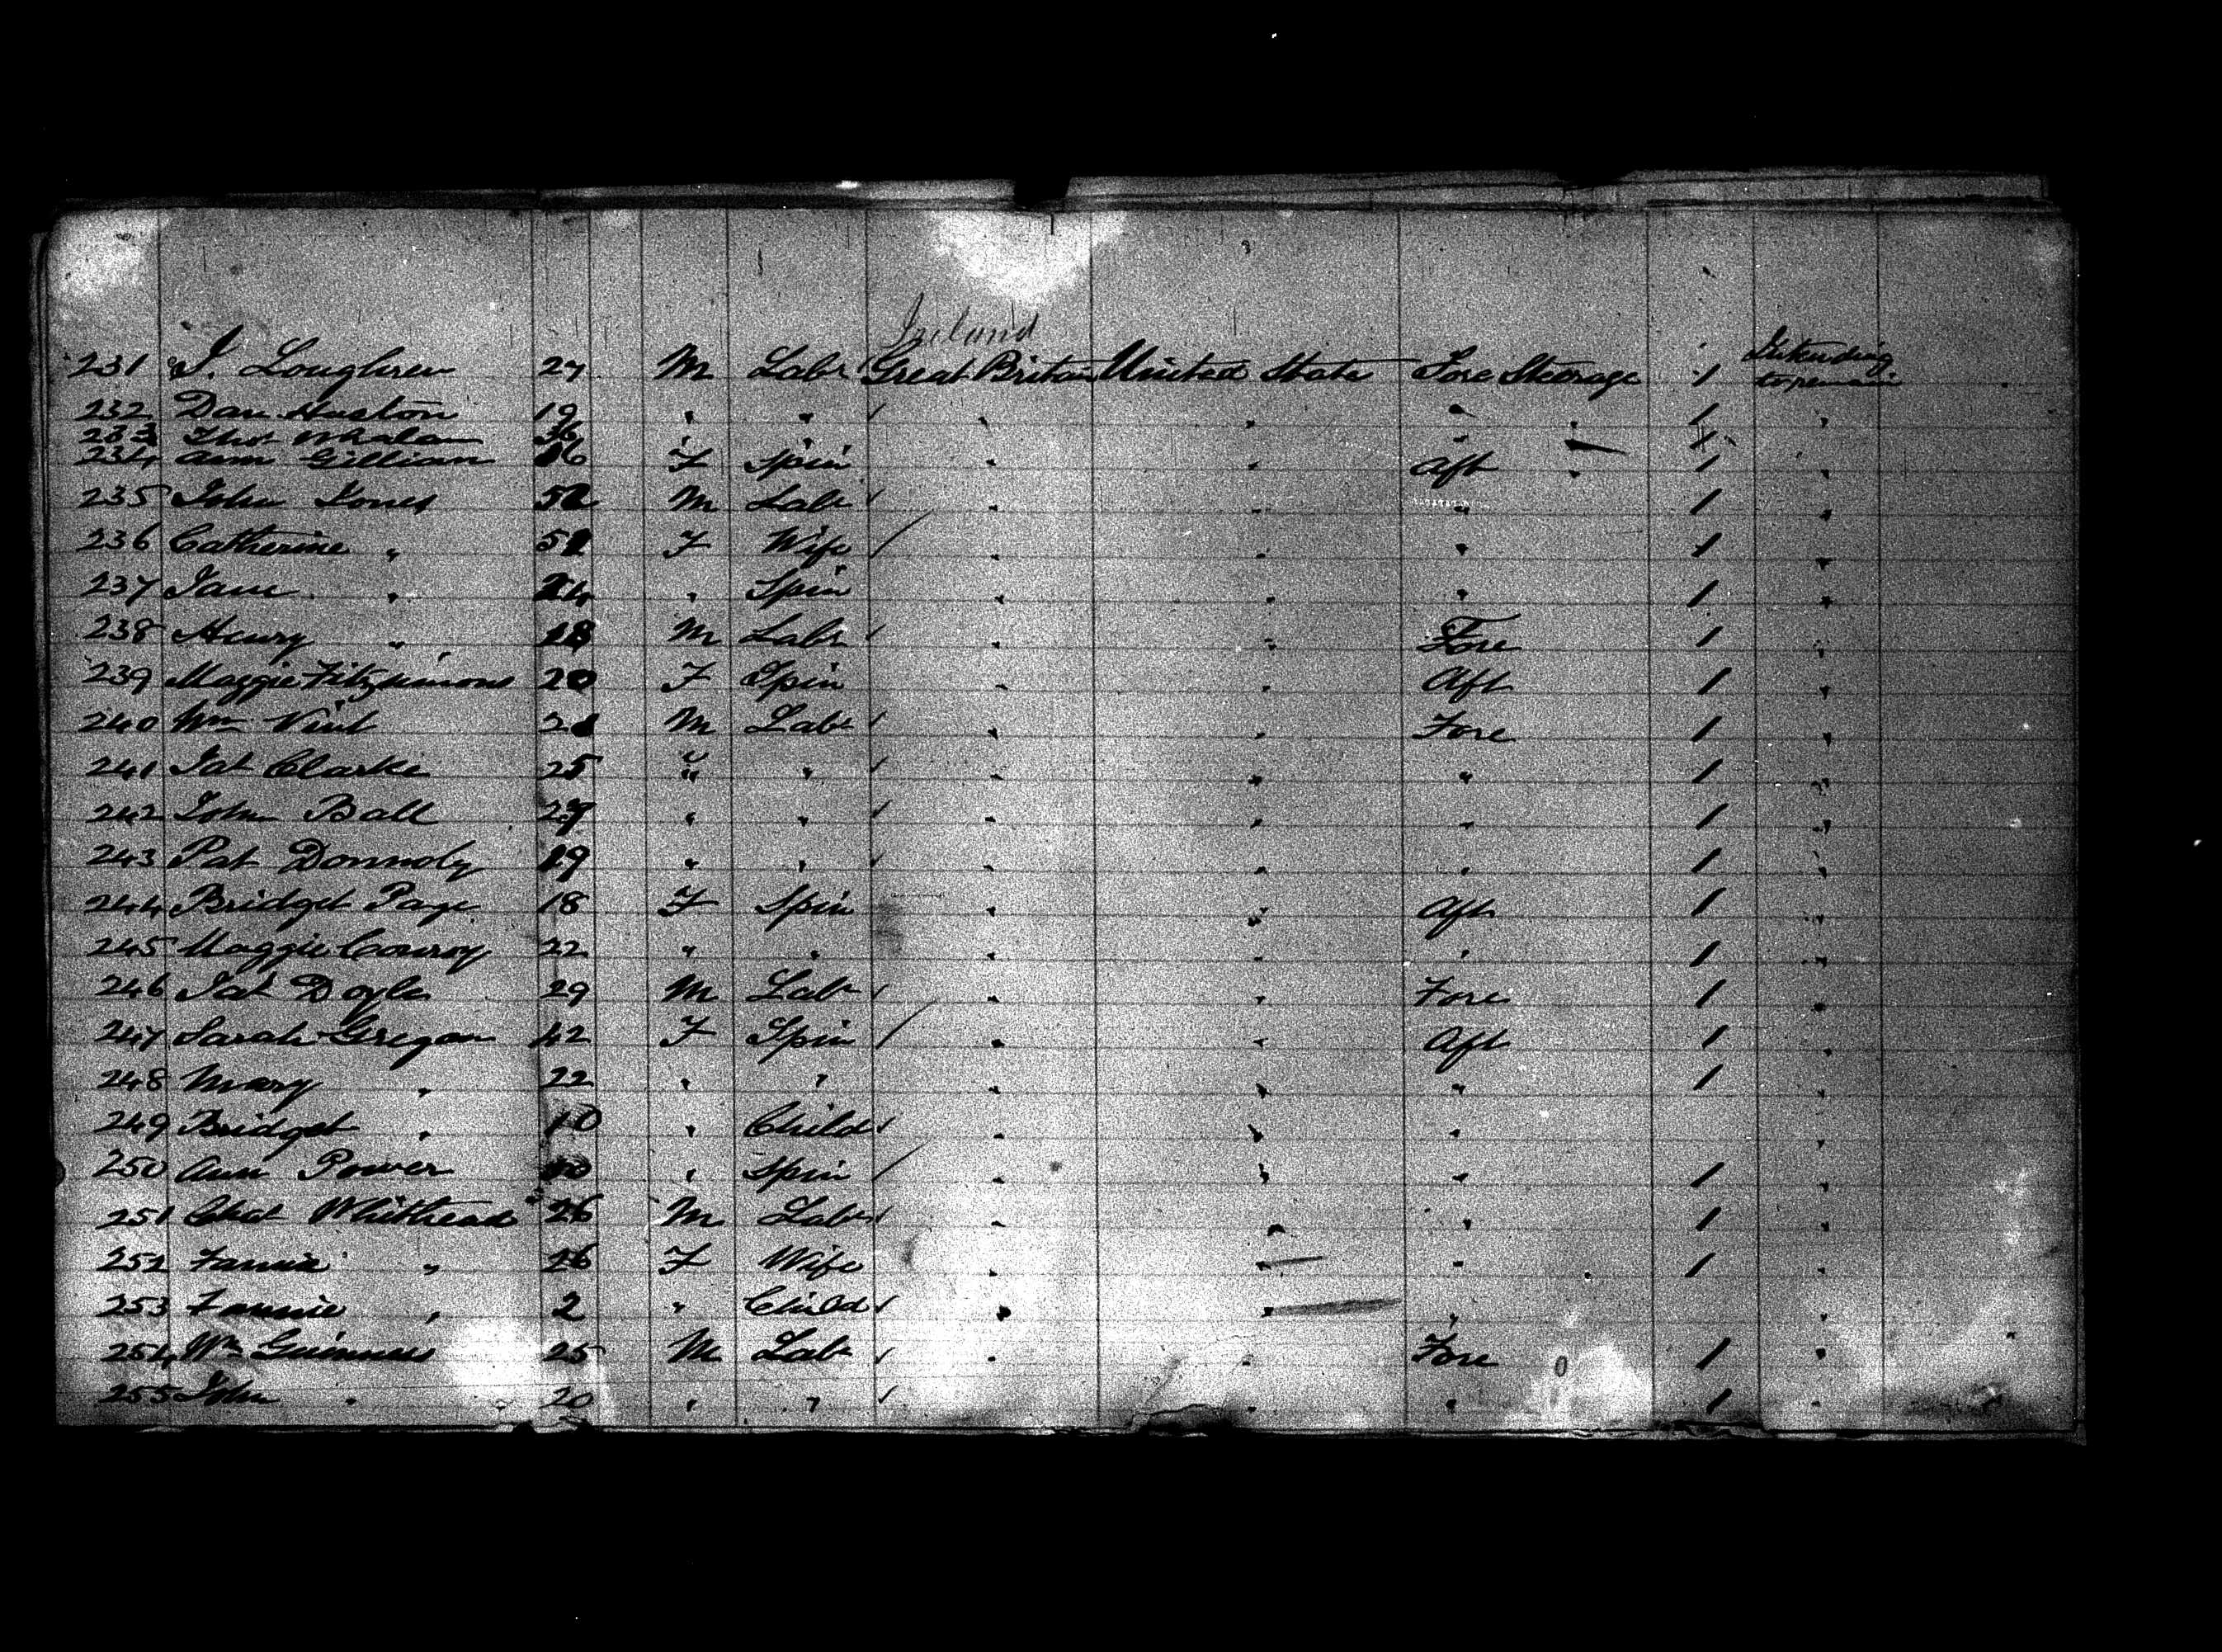 Ireland
231 J. Loughren 27 M Labr Great Britain United State Fore Steerage 1 Intending to remain
232 Dan Huston 19 " " " " " " 1 "
233 Thos Whalan 36 " " " " " 1
234 Ann Gillian F Spin " " Aft " 1 "
235 John Jones 52 M Labr " " " 1 "
236 Catherine " F Wife " " " 1 "
237 Jane " 24 " Spin " " " 1 "
238 Henry " 18 M Labr " " Fore 1 "
239 Maggie Fitzsimons 20 F Spin " " Aft 1 "
240 Wm Vint M Labr " " Fore 1 "
241 Pat Clarke 25 " " " " " 1 "
242 John Ball 27 " " " " " 1 "
243 Pat Donnoly 19 " " " " " 1 "
244 Bridget Page 18 F Spin " " Aft 1 "
245 Maggie Conroy 22 " " " " " 1 "
246 Pat Doyle 29 M Labr " " Fore 1 "
247 Sarah Gregan 42 F Spin " " Aft 1 "
248 Mary " 22 " " " " " 1 "
249 Bridget " 10 " Child " " " "
250 Ann Power " Spin " " " 1 "
251 Whithead 26 M Labr " " " 1 "
252 Fannie " 26 F Wife " " " 1 "
253 Fannie " 2 " Child " " " "
254 Wm Guinness 25 M Labr " " Fore 1 "
255 John " 20 " " " " " 1 "